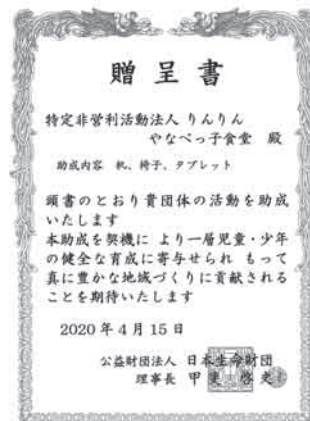 贈呈書
特定非営利活動法人 りんりん
やなべっ子食堂 殿
助成内容 机、椅子、タブレット
頭書のとおり貴団体の活動を助成
いたします
本助成を契機に より一層児童・少年
の健全な育成に寄与せられ もって
真に豊かな地域づくりに貢献される
ことを期待いたします
2020年4月15日
公益財団法人 日本生命財団
理事長 甲 啓史